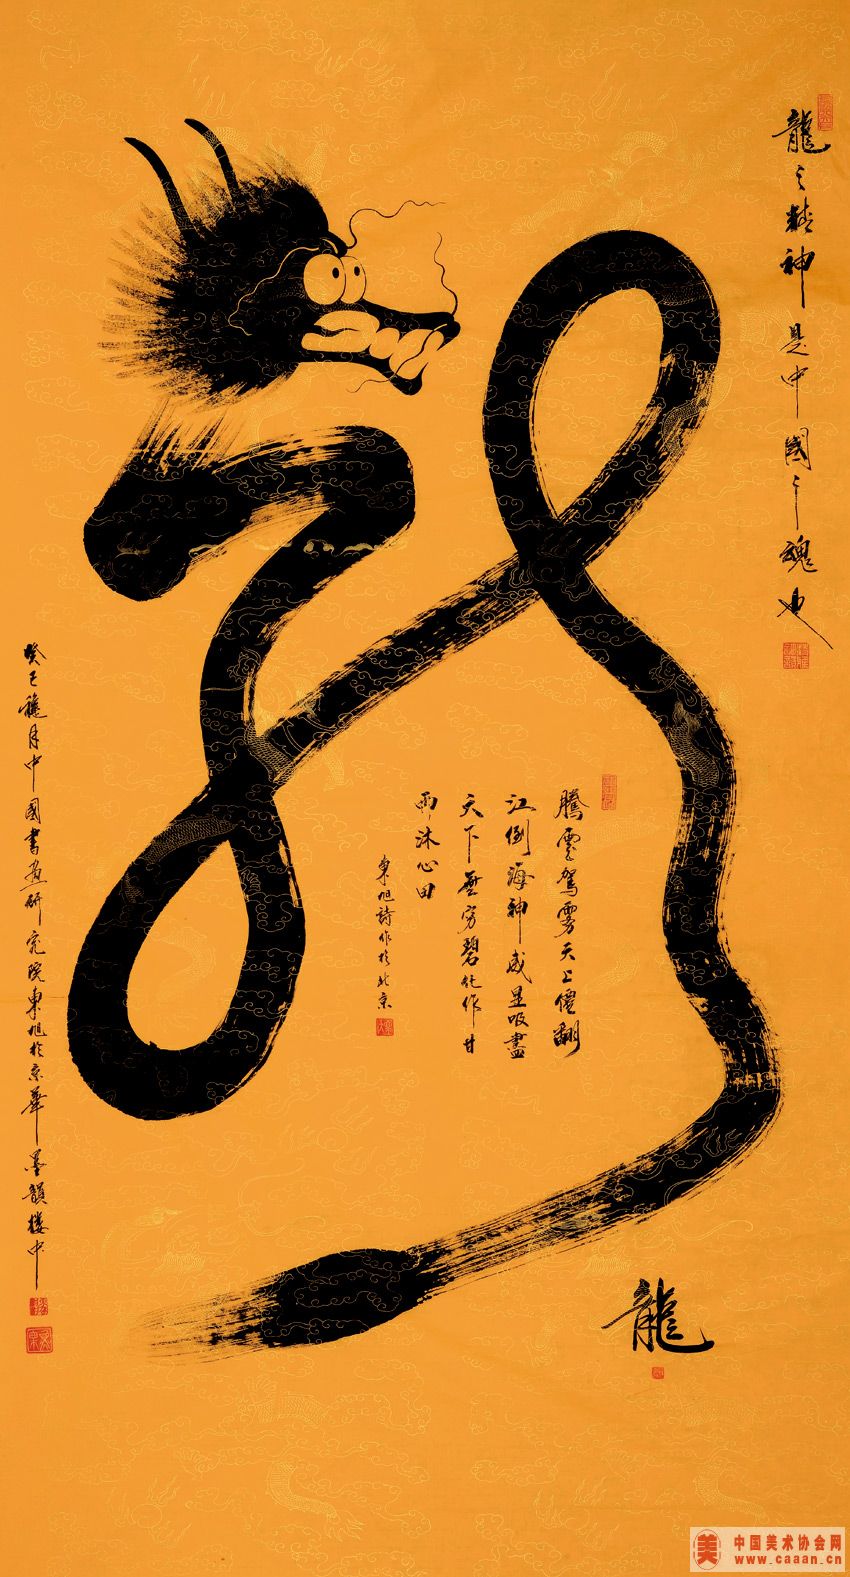 龍之精神是中國之魂也
騰雲駕霧天上僊翻
江倒海神威显吸盡
天下無穷碧化作甘
雨沐心田
東旭詩作於北京
龍
癸巳 月中國書画研究院東旭於京華墨韻楼中
美
中国美术协会网
www.caaan.cn